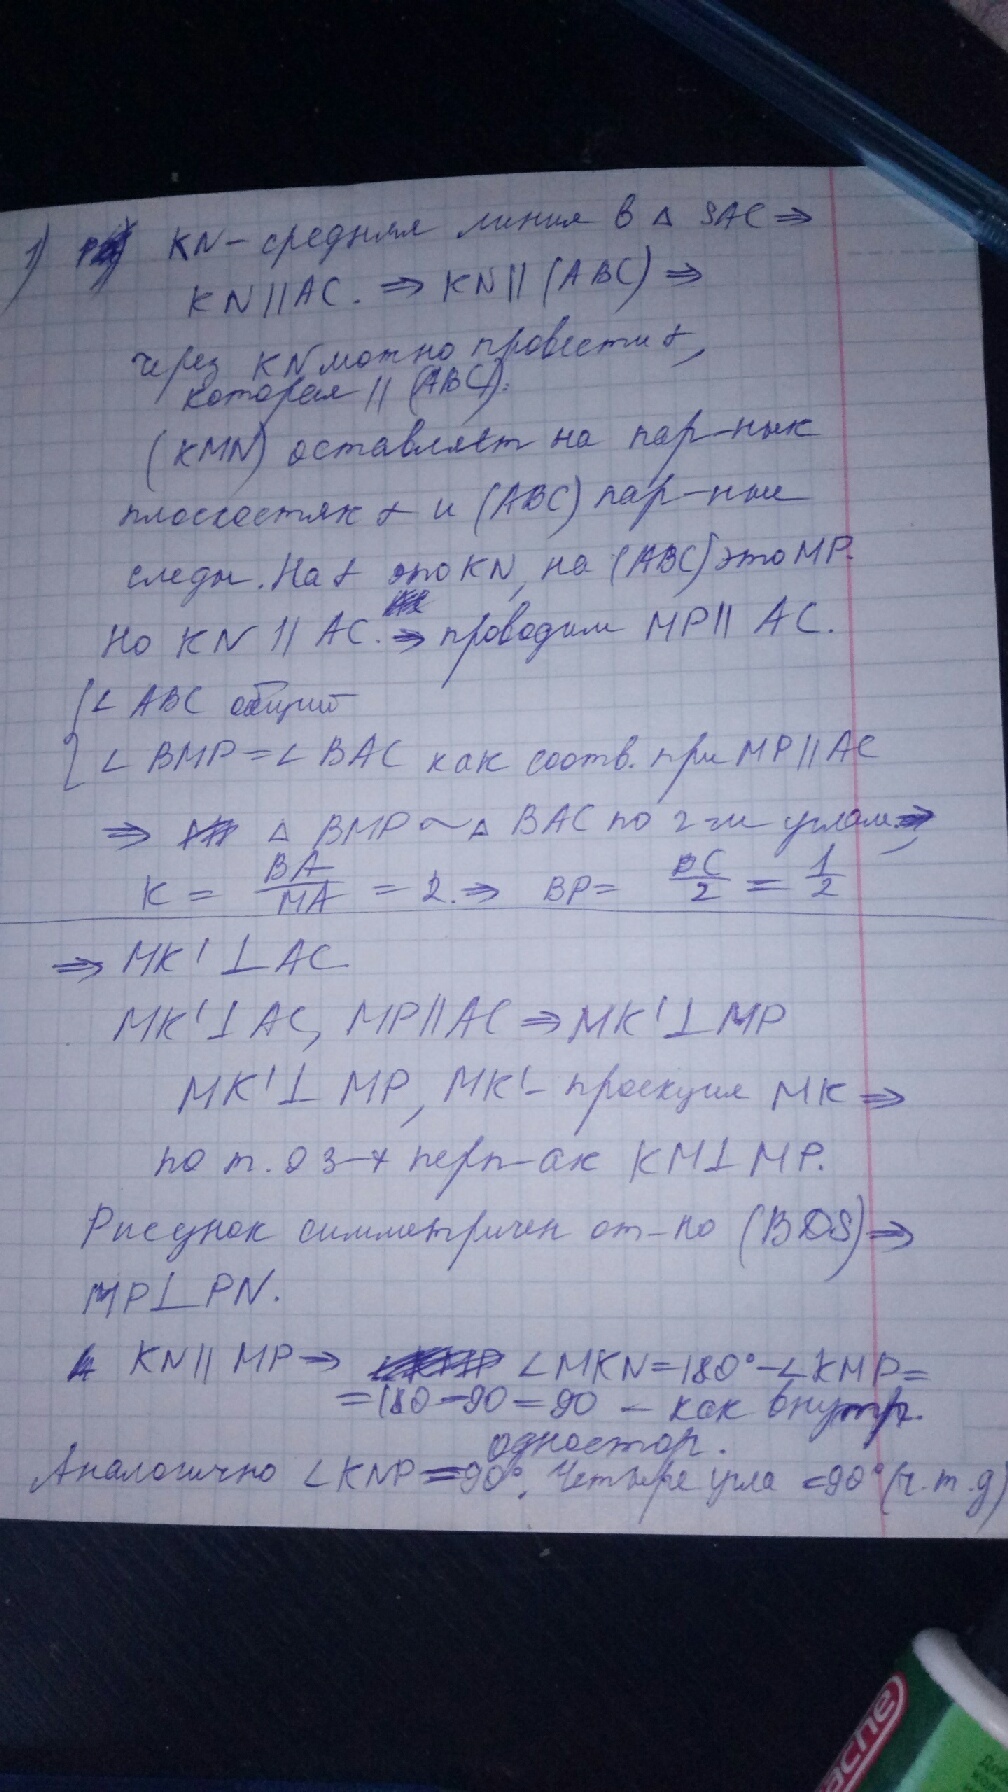 1) KN – средняя линия в △ SAC ⇒
KN || AC. ⇒ KN || (ABC) ⇒
через KN можно провести α,
которая || (ABC).
(KMN) оставляет на пар-ных
плоскостях α и (ABC) пар-ные
следы. На α это KN, на (ABC) это MP.
Но KN || AC. ⇒ проводим MP || AC.
{∠ ABC общий
∠ BMP = ∠ BAC как соотв. при MP || AC
⇒ △ BMP ~ △ BAC по 2-м углам ⇒,
K = BA/MA = 2. ⇒ BP = BC/2 = 1/2
⇒ MK' ⊥ AC
MK' ⊥ AC, MP || AC ⇒ MK' ⊥ MP
MK' ⊥ MP, MK' – проекция MK ⇒
по т. о 3-х перп-ах KM ⊥ MP.
Рисунок симметричен от-но (BDS) ⇒
MP ⊥ PN.
KN || MP ⇒ ∠MKN = 180° – ∠KMP =
= 180 – 90 = 90 – как внутр.
одностор.
Аналогично ∠KNP = 90°. Четыре угла = 90° (ч.т.д)
acne